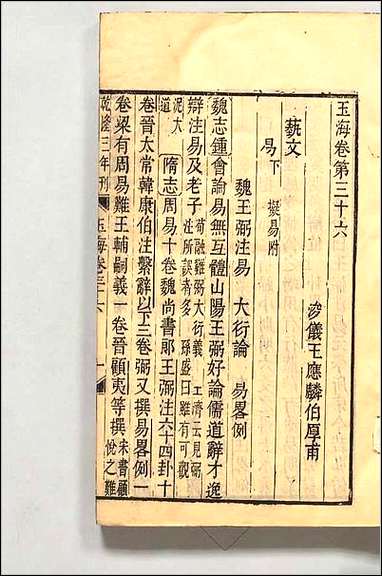 玉海卷第三十六
浚儀王應麟伯厚甫
藝文
易下 擬易附
魏王弼注易 大衍論 易畧例
魏志鍾會論易無互體山陽王弼好論儒道辭才逸
辯注易及老子荀融難弼大衍義 王濟云見弼
注所誤者多 孫盛曰雖有可觀
泥大
道
隋志周易十卷魏尚書郎王弼注六十四卦十
卷晉太常韓康伯注繫辭以下三卷弼又撰易畧例一
卷梁有周易難王輔嗣義一卷晉顧夷等撰宋書顧
悅之難
乾隆三年刊 玉海卷三十六 一